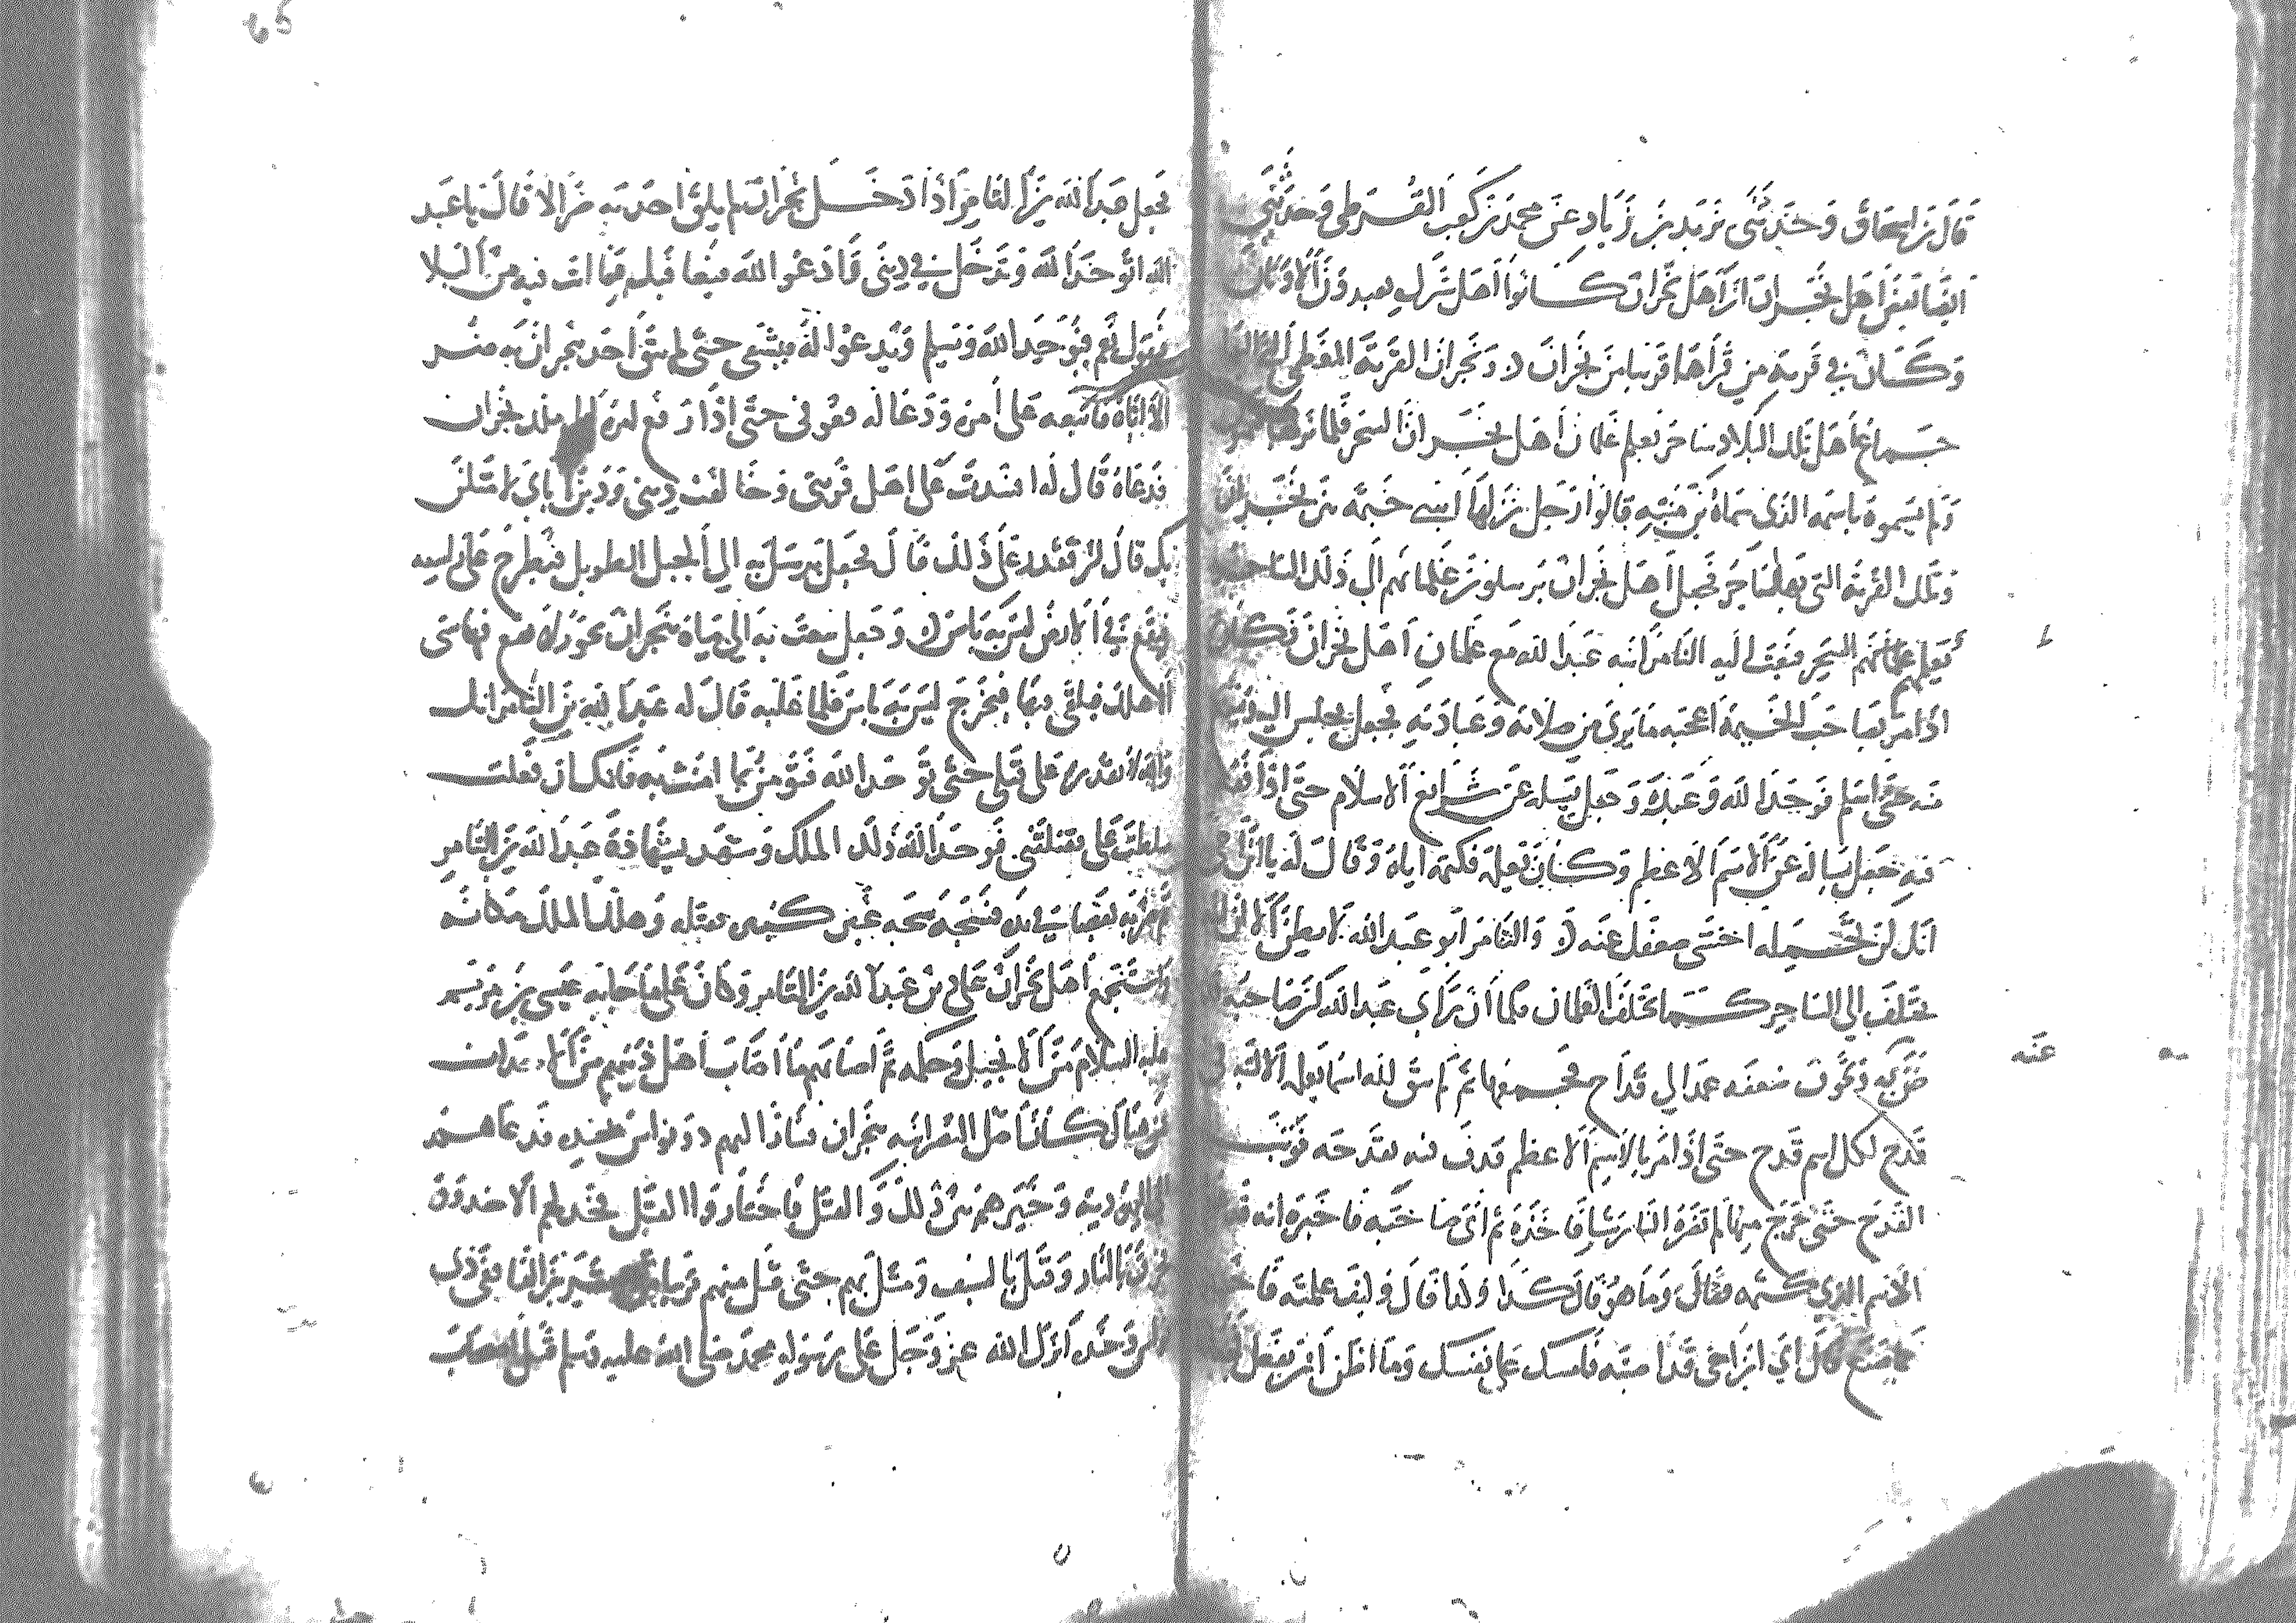 قال بن اسحاق وحدثني يزيد بن زياد عن محمد بن كعب القرظي وحدثني
ايضا بعض اهل نجران ان اهل نجران كانوا اهل شرك يعبدون الاوثان
وكان في قرية من قراها قريبا من نجران ونجران القرية العظمى التي اليها
جماع اهل تلك البلاد ساحر يعلم غلمان اهل نجران السحر فلما نزلها
ولم يسموه باسمه الذي سماه بن منبه قالوا رجل نزلها ابتنى خيمة بين نجران
وتلك القرية التي بها الساحر فجعل اهل نجران يرسلون غلمانهم الى ذلك الساحر
يعلمهم السحر فبعث اليه الثامر ابنه عبد الله مع غلمان اهل نجران فكان
اذا مر بصاحب الخيمة اعجبه ما يرى من صلاته وعبادته فجعل يجلس اليه
منه حتى اسلم فوحد الله وعبده وجعل يسله عن شرايع الاسلام حتى اذا فقه
فيه جعل يساله عن الاسم الاعظم وكان يعلمه فكتمه اياه وقال له يا بن اخي
انك لن تحمله اخشى ضعفك عنه والثامر ابو عبد الله لا يظن الا ان
يختلف الى الساحر كما يختلف الغلمان فلما ان راى عبد الله ان صاحبه
ضن به وتخوف ضعفه عمد الى قداح فجمعها ثم لم يبق لله اسما يعلمه الا كتبه في
عنه
قدح لكل اسم قدح حتى اذا مر بالاسم الاعظم قذف فيه بقدحه فوثب
القدح حتى خرج منها لم تضره النار شيا فاخذه ثم اتى صاحبه فاخبره انه قد
الاسم الذي كتمه فقال وما هو قال كذا وكذا قال وكيف علمته فاخبره
بما صنع قال اي ابن اخي قد اصبته فامسك على نفسك وما اظن ان تفعل
فجعل عبد الله بن الثامر اذا دخل نجران لم يلق احد به ضر الا قال يا عبد
الله اتوحد الله وتدخل في ديني وادعو الله فيعافيك مما انت فيه من البلا
فيقول نعم فيوحد الله ويسلم ويدعو له فيشفى حتى لم يبق احد بنجران به ضر
الا اتاه فاتبعه على امره ودعا له فعوفى حتى اذا رفع امره الى ملك نجران
فدعاه قال له افسدت علي اهل قريتي وخالفت ديني ودين اباي لامثلن
بك قال لن تقدر على ذلك قال فجعل يرسل به الى الجبل الطويل فيطرح على راسه
فيقع في الارض ليس به باس وجعل يبعث به الى مياه بنجران بحور لا يقع فيها شي
الا هلك فيلقى فيها فيخرج ليس به باس فلما غلبه قال له عبد الله بن الثامر انك
والله لا تقدر على قتلي حتى توحد الله فتؤمن بما امنت به فانك ان فعلت
سلطت علي فقتلتني فوحد الله ذلك الملك وشهد بشهادة عبد الله بن الثامر
ثم ضربه بعصا في يده فشجه شجه غير كبيره فقتله وهلك الملك مكانه
واستجمع اهل نجران على دين عبد الله بن الثامر وكان على ما جا به عيسى بن مريم
عليه السلام من الانجيل وحكمه ثم اصابهم ما اصاب اهل دينهم من الاحداث
فمن هنالك كان اصل النصرانيه بنجران فسار اليهم ذو نواس بجنده فدعاهم
الى اليهوديه وخيرهم بين ذلك والقتل فاختاروا القتل فخد لهم الاخدود
فحرق بالنار وقتل بالسيف ومثل بهم حتى قتل منهم قريبا من عشرين الفا ففي ذي
نواس وجنده انزل الله عز وجل على رسوله محمد صلى الله عليه وسلم قتل اصحاب